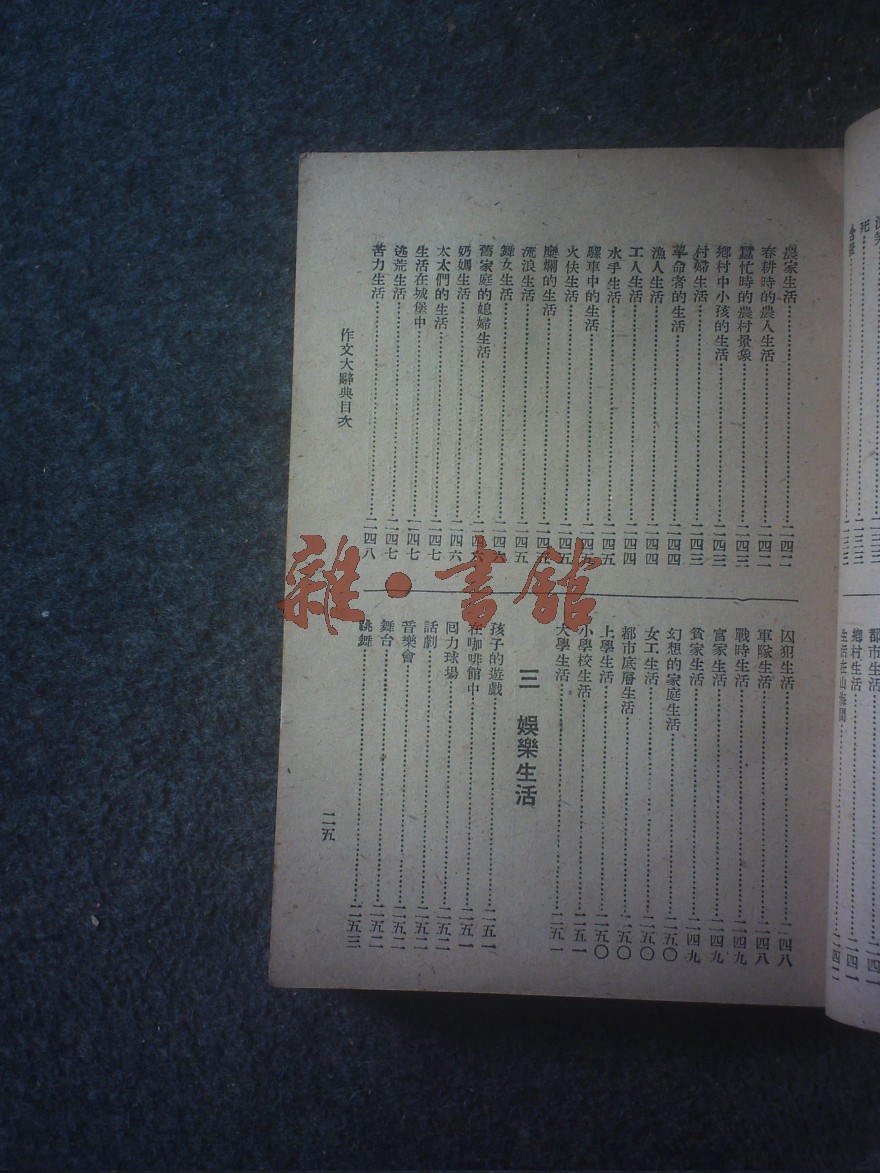 農家生活 二四二
春耕時的農人生活 二四二
蠶忙時的農村景象 二四三
鄉村中小孩的生活 二四三
村婦生活 二四三
革命者的生活 二四四
漁人生活 二四四
工人生活 二四四
水手生活 二四五
騾車中的生活 二四五
火伕生活 二四五
糜爛的生活 二四五
流浪生活 二四五
舞女生活 二四六
舊家庭的媳婦生活 二四六
奶媽生活 二四六
太太們的生活 二四七
生活在城堡中 二四七
逃荒生活 二四七
苦力生活 二四八
囚犯生活 二四八
軍隊生活 二四八
戰時生活 二四九
富家生活 二四九
貧家生活 二四九
幻想的家庭生活 二五〇
女工生活 二五〇
都市底層生活 二五〇
上學生活 二五〇
小學校生活 二五一
大學生活 二五一
三 娛樂生活
孩子的遊戲 二五一
在咖啡館中 二五一
回力球場 二五二
話劇 二五二
音樂會 二五二
舞台 二五二
跳舞 二五三
作文大辭典目次
二五
都市生活 二四一
鄉村生活 二四一
生活在山海間 二四二
雜·書館